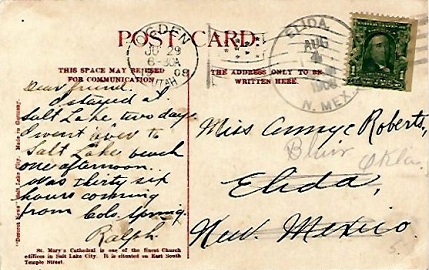 POST CARD
OGDEN
JUL 29
6-30A
UTAH
08
ELIDA,
AUG
4
1908
N. MEX.
THIS SPACE MAY BE USED
FOR COMMUNICATION
THE ADDRESS ONLY TO BE
WRITTEN HERE.
Dear friend.
I stayed at
Salt Lake two days
I went over to
Salt Lake beach
one afternoon.
Was thirty six
hours coming
from Colo. Springs.
Ralph
Miss Annye Roberts,
Blair
Okla.
Elida,
New Mexico.
"Deseret News" Salt Lake City. Made in Germany.
St. Mary's Cathedral is one of the finest Church
edifices in Salt Lake City. It is situated on East South
Temple Street.